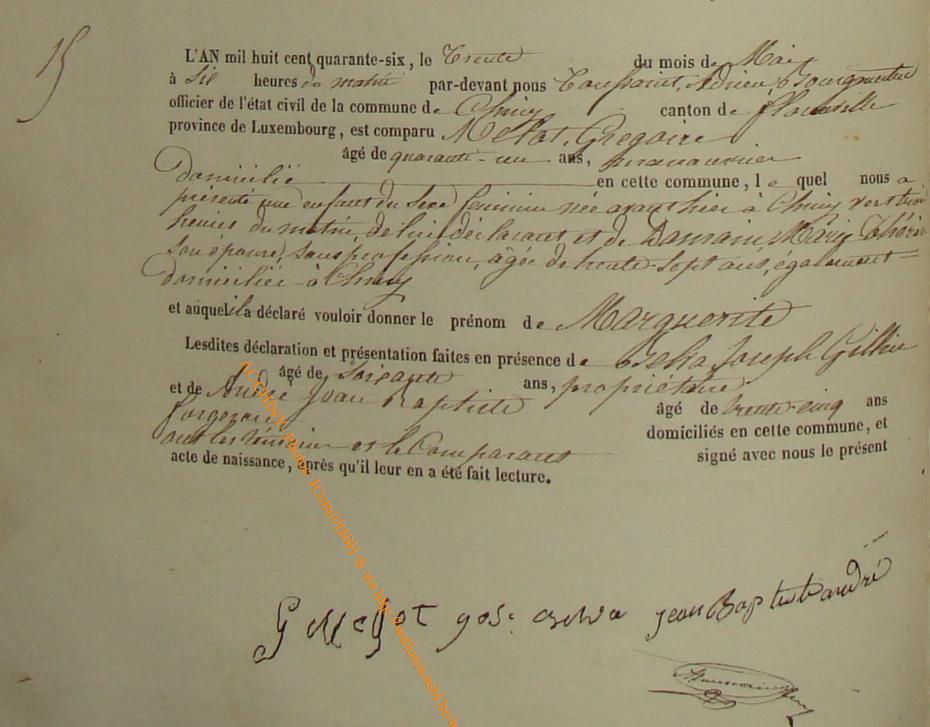 15
L'AN mil huit cent quarante-six, le Trente du mois de Mai
à Six heures du matin par-devant nous Toussaint, Adrien
officier de l'état civil de la commune de Chiny canton de florenville
province de Luxembourg, est comparu Mellot, Gregoire
âgé de quarante-un ans, manouvrier
Domicilié en cette commune, le quel nous a
présenté une enfant du Sexe feminin née avant hier à Chiny vers trois
heures du matin, de lui déclarant et de Marie Thérèse
Son épouse, sans profession, âgée de trente-Sept ans, également
domiciliée à Chiny
et auquel il a déclaré vouloir donner le prénom de Marguerite
Lesdites déclaration et présentation faites en présence de Joseph
âgé de Soixante ans, propriétaire
et de André Jean Baptiste âgé de trente-cinq ans
forgeron domiciliés en cette commune, et
ont les témoins et le Comparant signé avec nous le présent
acte de naissance, après qu'il leur en a été fait lecture.
G Mellot jos. jean Baptiste andré